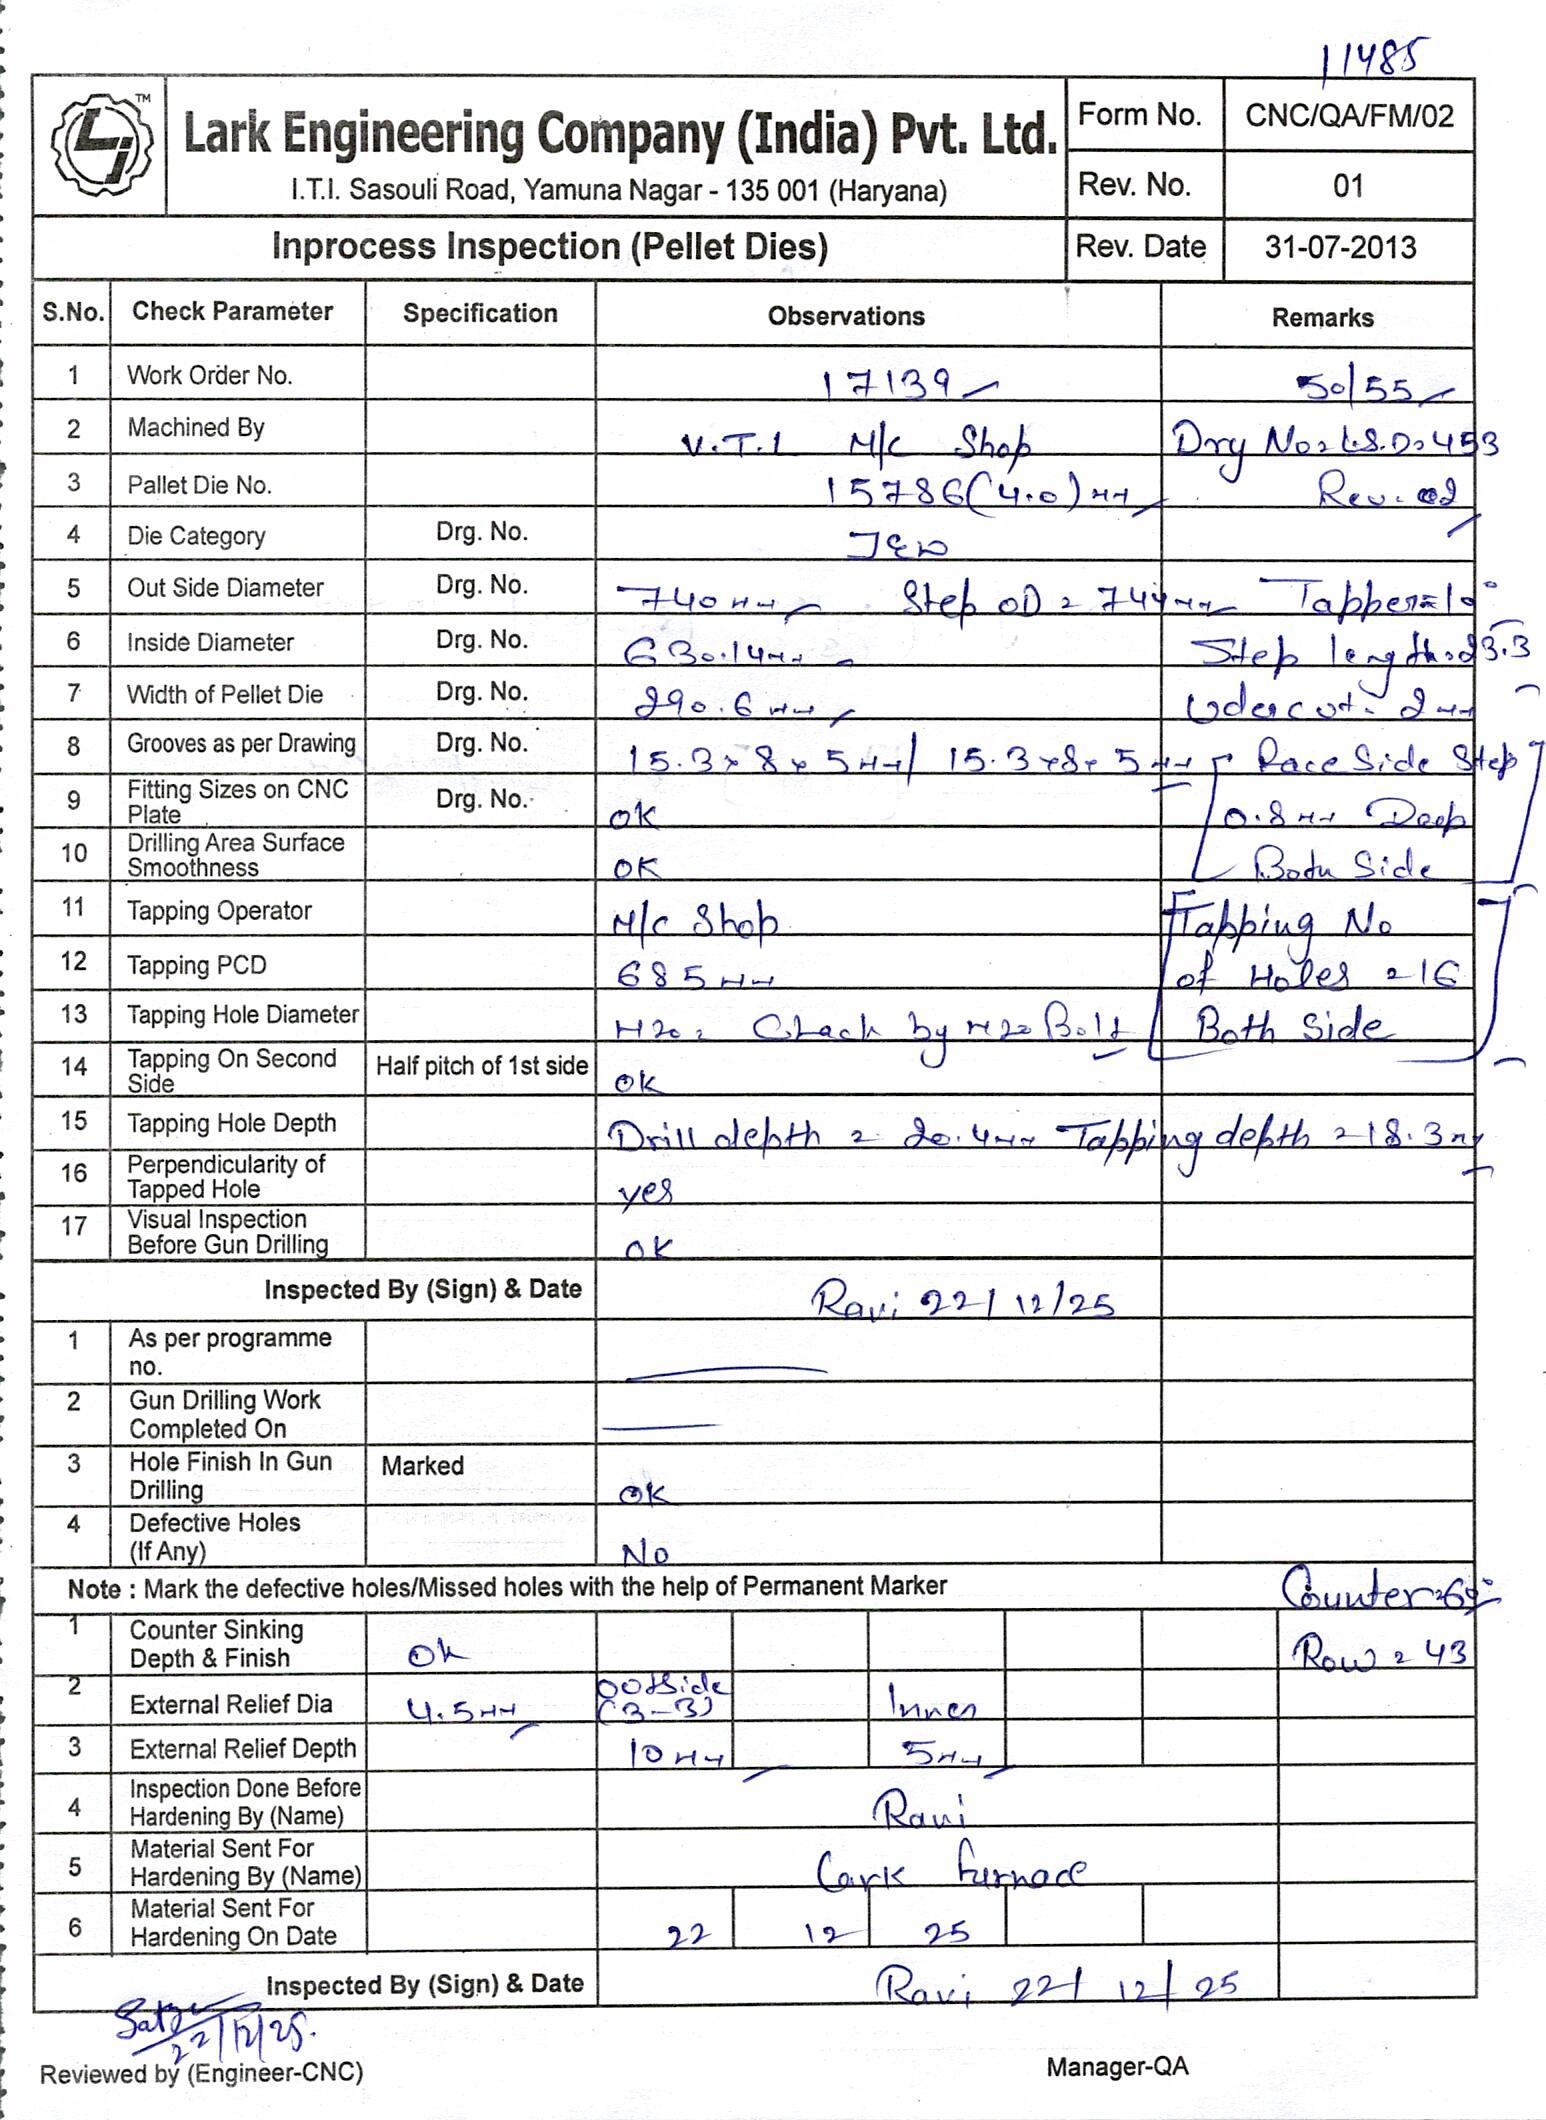 11485
TM
Lark Engineering Company (India) Pvt. Ltd.
I.T.I. Sasouli Road, Yamuna Nagar - 135 001 (Haryana)
Form No. CNC/QA/FM/02
Rev. No. 01
Inprocess Inspection (Pellet Dies) Rev. Date 31-07-2013
S.No. Check Parameter Specification Observations Remarks
1 Work Order No. 17139 50/55
2 Machined By V.T.L M/C Shop Drg No = L.S.D = 453
3 Pallet Die No. 15786 (4.0) mm Rev. 02
4 Die Category Drg. No.
5 Out Side Diameter Drg. No. 740 mm Step OD = 744 mm Tapper = 10°
6 Inside Diameter Drg. No. 630.14 mm Step length = 23.3
7 Width of Pellet Die Drg. No. 290.6 mm Udercut = 2 mm
8 Grooves as per Drawing Drg. No. 15.3 x 8 x 5 mm / 15.3 x 8 x 5 mm Race Side Step
9 Fitting Sizes on CNC Plate Drg. No. OK 0.8 mm Deep
10 Drilling Area Surface Smoothness OK Both Side
11 Tapping Operator M/C Shop Tapping No
12 Tapping PCD 685 mm of Holes = 16
13 Tapping Hole Diameter M20 = Chack by M20 Bolt Both Side
14 Tapping On Second Side Half pitch of 1st side OK
15 Tapping Hole Depth Drill depth = 20.4 mm Tapping depth = 18.3 mm
16 Perpendicularity of Tapped Hole yes
17 Visual Inspection Before Gun Drilling OK
Inspected By (Sign) & Date Ravi 22/12/25
1 As per programme no.
2 Gun Drilling Work Completed On
3 Hole Finish In Gun Drilling Marked OK
4 Defective Holes (If Any) No
Note : Mark the defective holes/Missed holes with the help of Permanent Marker Counter = 60°
1 Counter Sinking Depth & Finish Ok Row = 43
2 External Relief Dia 4.5 mm Outside (3-3) Inner
3 External Relief Depth 10 mm 5 mm
4 Inspection Done Before Hardening By (Name) Ravi
5 Material Sent For Hardening By (Name) Lark Furnace
6 Material Sent For Hardening On Date 22 12 25
Inspected By (Sign) & Date Ravi 22/12/25
22/12/25.
Reviewed by (Engineer-CNC) Manager-QA